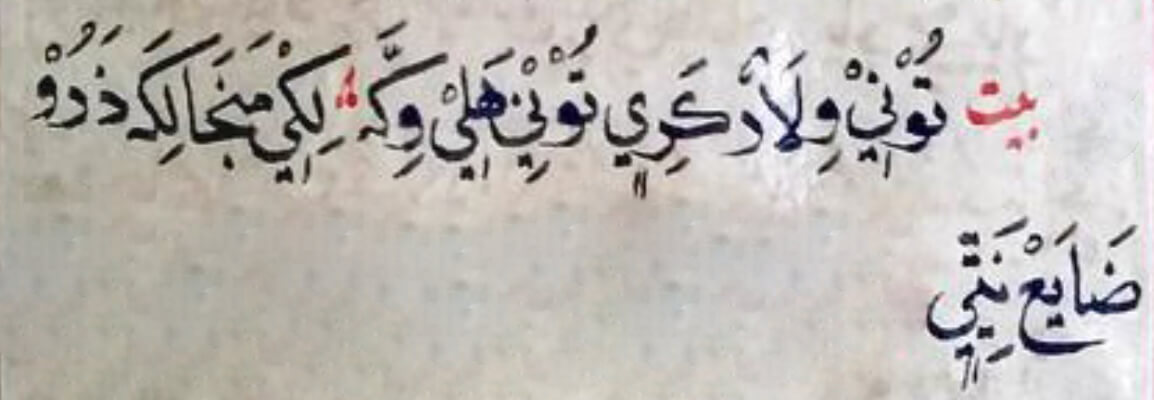 بيت تُوْنِيْ وِلَادْ كَرِي تُوْنِيْ هَلِيْ وِكَّه لِكِيْ مَنجَا لِكَه ذَرُوْ
ضَايَعْ نَتِيِّ